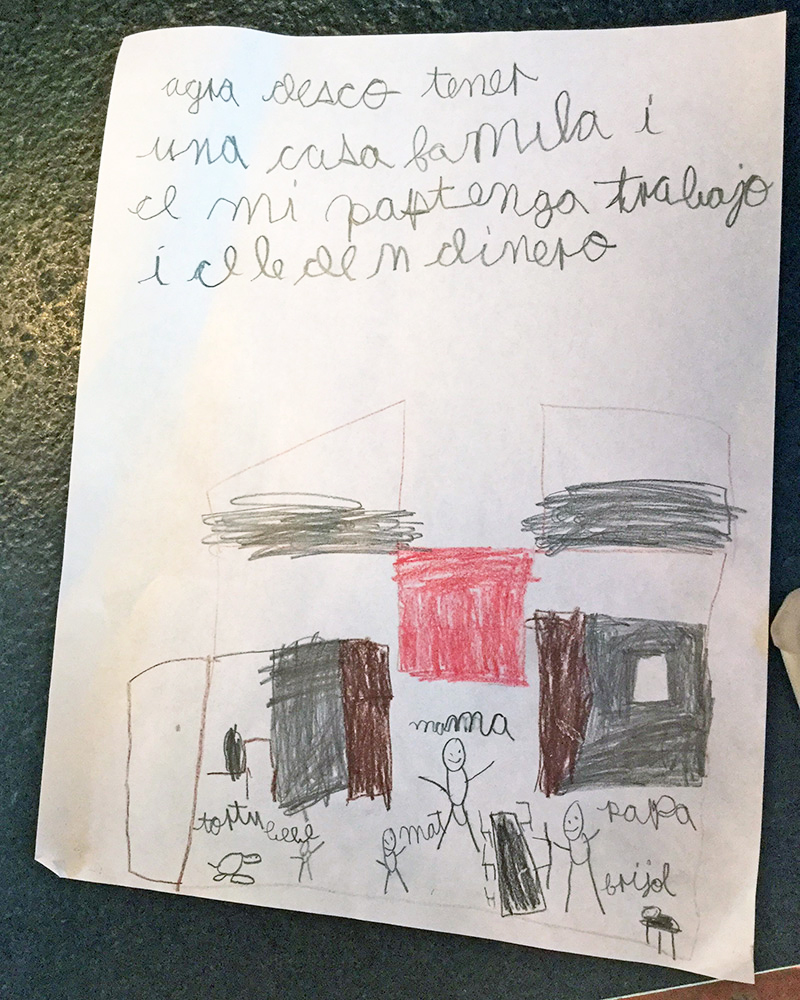 agra desco tener
una casa familа i
el mi pap tenga trabajo
i el le den dinero
mamma
tortu
bebe
mat
papa
brijol